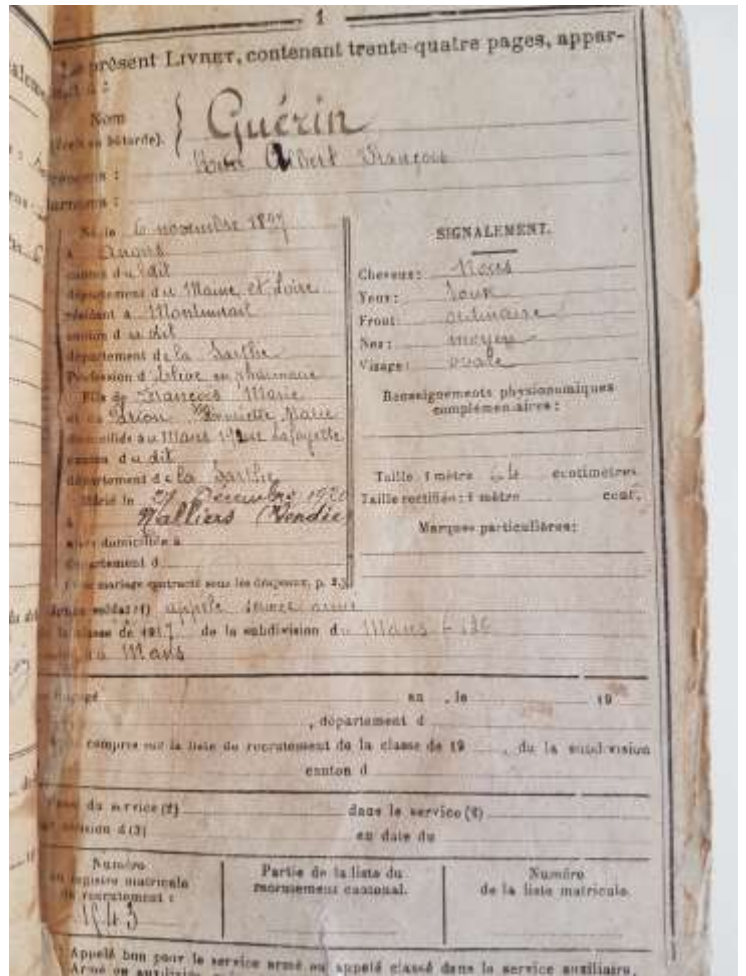 1
présent LIVRET, contenant trente-quatre pages, appar-
à :
Nom
(Écrit en bâtarde).
Guérin
Albert François
Né le 6 novembre 1897
à Angers
canton du dit
département du Maine et Loire
résident à
canton du dit
département de la Sarthe
Profession d'élève en pharmacie
Fils de François Marie
et de Henriette Marie
domiciliés au Mans rue Lafayette
canton du dit
département de la Sarthe
Marié le 27 Décembre 1920
à Nalliers (Vendée)
domiciliée à
département d
mariage contracté sous les drapeaux, p. 2
SIGNALEMENT.
Cheveux : Noirs
Yeux :
Front : ordinaire
Nez : moyen
Visage : ovale
Renseignements physionomiques
complémentaires :
Taille : 1 mètre centimètres
Taille rectifiée : 1 mètre cent.
Marques particulières :
soldat (1) appelé service armé
classe de 1917 de la subdivision du Mans
Mans
en , le 19
, département d
compris sur la liste de recrutement de la classe de 19 , de la subdivision
canton d
du service (2) dans le service (2)
d (3) en date du
Numéro
registre matricule
recrutement :
1643
Partie de la liste du
recrutement cantonal.
Numéro
de la liste matricule.
Appelé bon pour le service armé ou appelé classé dans le service auxiliaire.
Armé ou auxiliaire